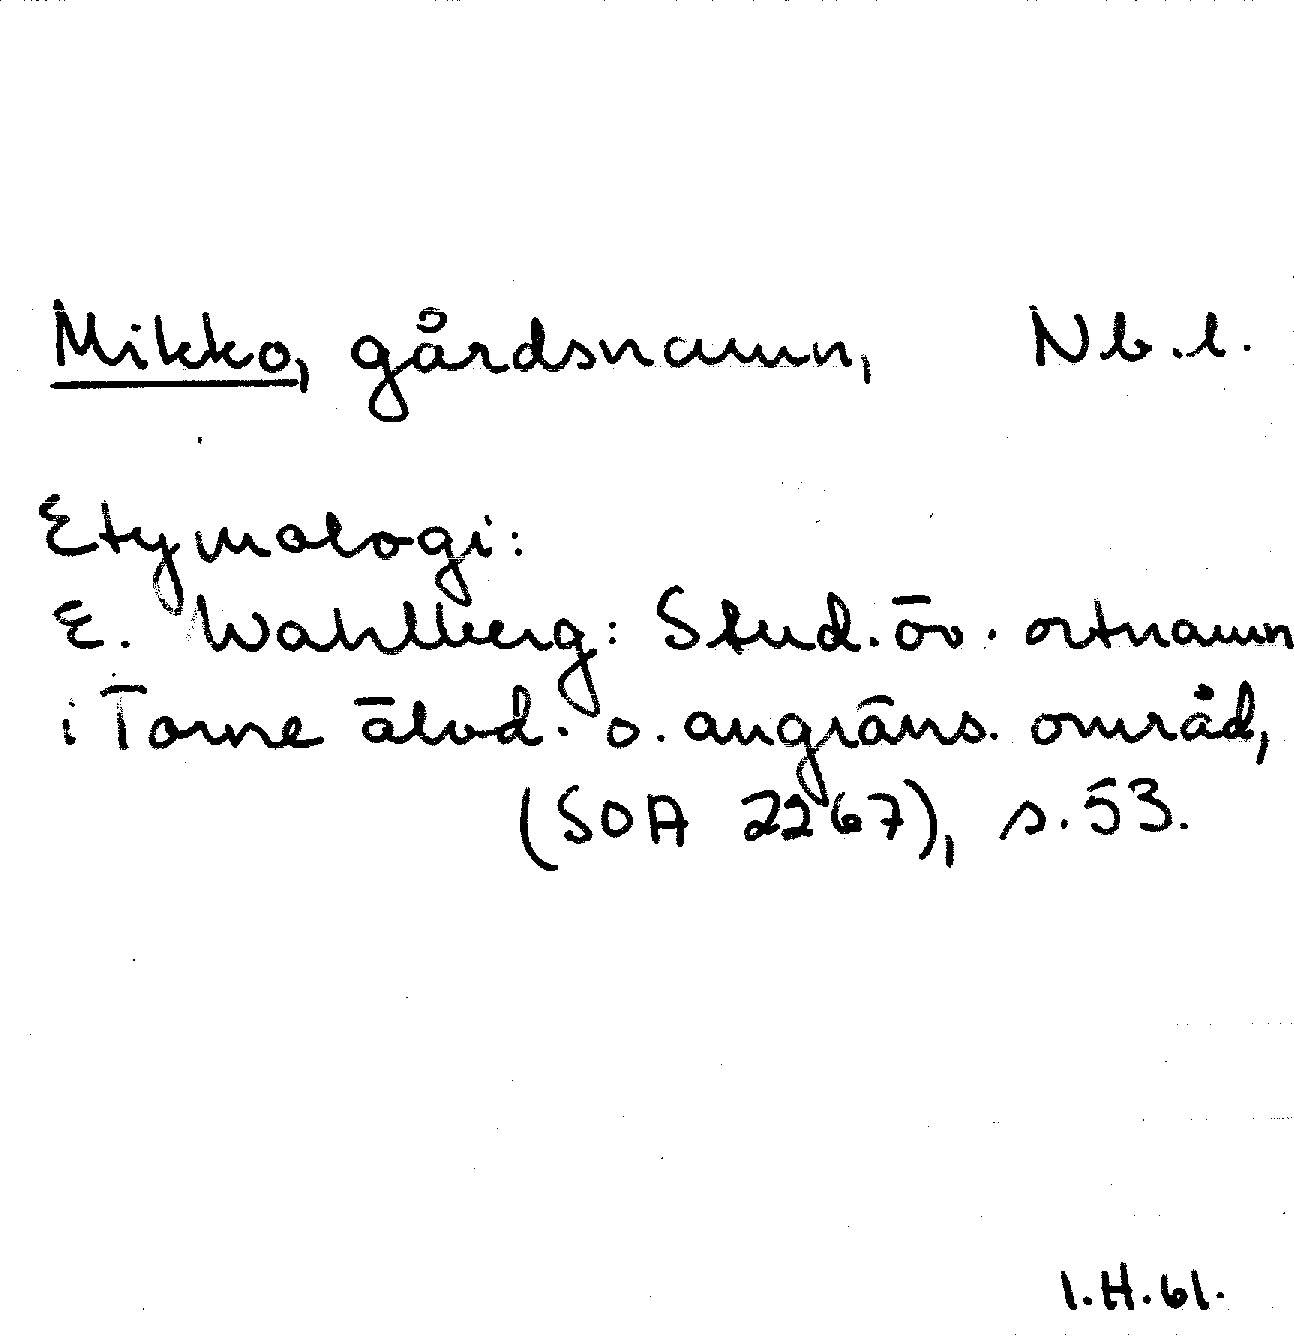 Mikko, gårdsnamn, Nb.l.
Etymologi:
E. Wahlberg: Stud. öv. ortnamn
i Torne älvd. o. angräns. områd,
(SOA 2267), s. 53.
I.H.61.